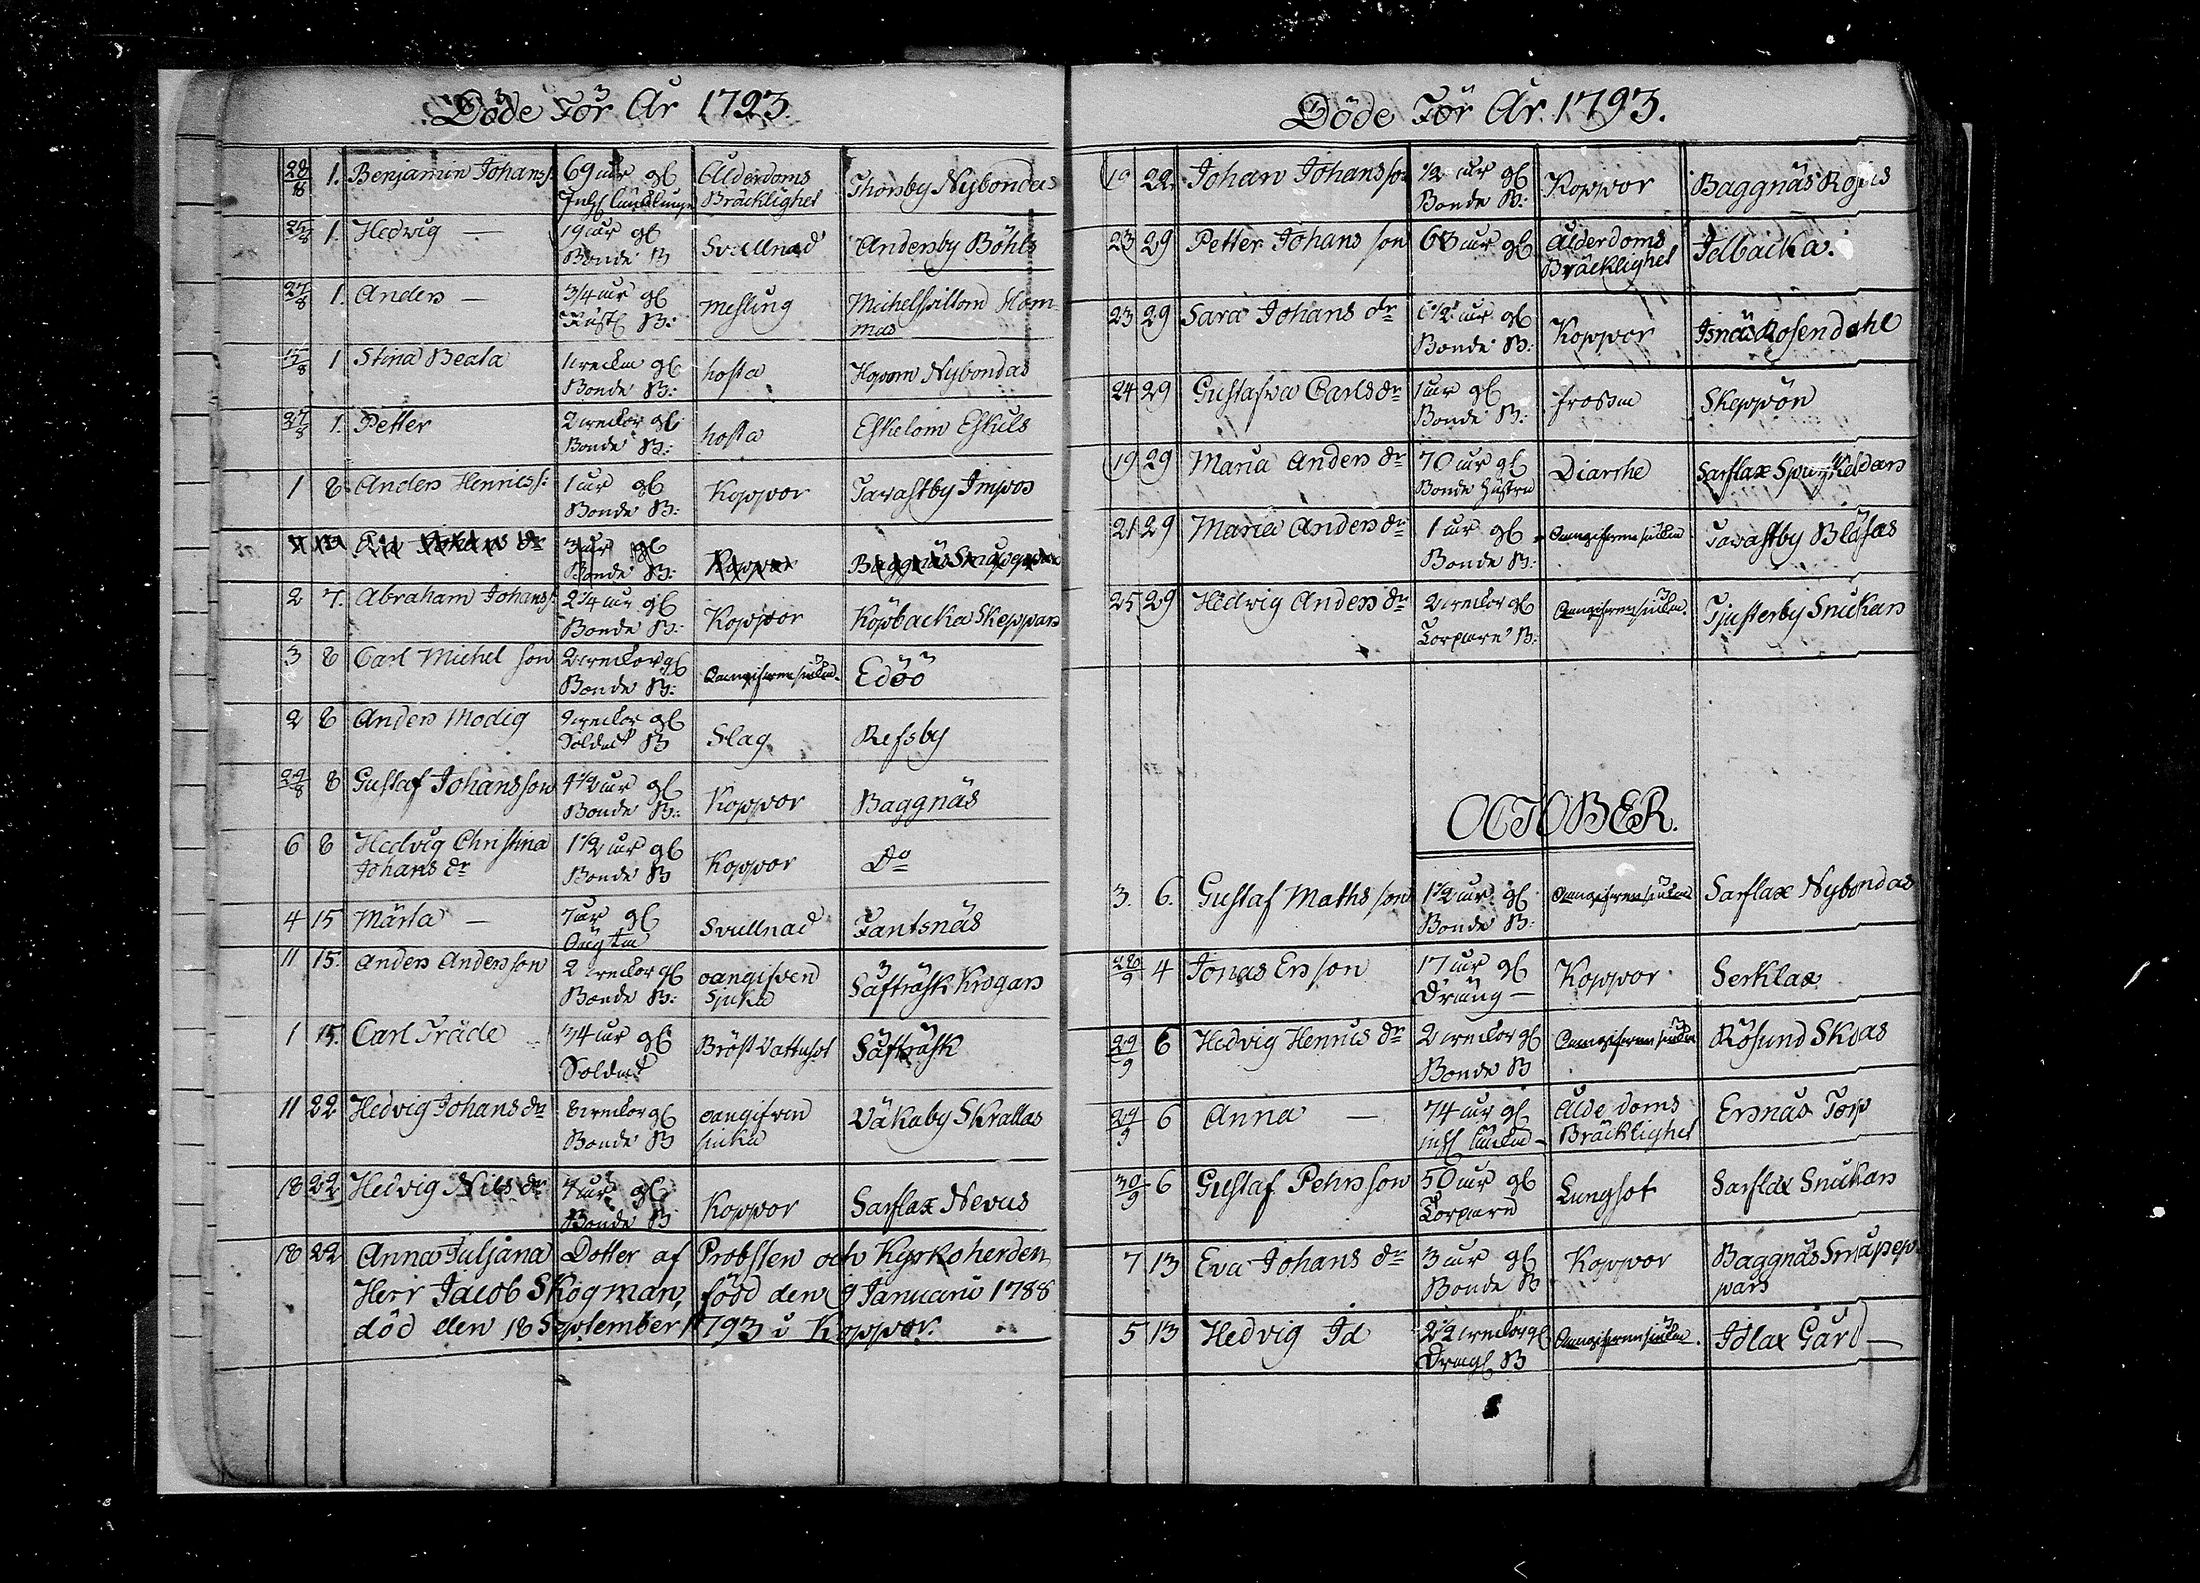 Döde För År 1793.
28/8 1. Benjamin Johanss: 69 år gl Ålderdoms Thorsby Nybondas
Bräcklighet
25/8 1. Hedvig — 19 år gl Svullnad Andersby Böhls
Bonde B
27/8 1. Anders — 3/4 år gl mesling Michelspiltom Hom-
Rust B: mas
1 Stina Beata 1 wecka gl hosta Hopom Nybondas
Bonde B:
27/8 1. Petter 2 weckor gl hosta Eskelom Eskils
Bonde B:
1 8 Anders Henricss: 1 år gl Koppor Tavastby Impos
Bonde B:
Eva Johans dr 3 år gl Koppor Baggnäs
Bonde B:
2 7. Abraham Johanss: 2 1/4 år gl Koppor Köpbacka Skeppars
Bonde B:
3 8 Carl Michel son 2 weckor gl Oangifven siukd. Edöö
Bonde B:
2 8 Anders Modig weckor gl Slag Refsby
Soldat B
29/8 8 Gustaf Johansson 4 1/2 år gl Koppor Baggnäs
Bonde B:
6 8 Hedvig Christina 1 1/2 år gl Koppor Do
Johans dr Bonde B
4 15 Märta — 7 år gl Svullnad Fantsnäs
11 15. Anders Andersson 2 weckor gl oangifven Säfträsk Krogars
Bonde B: sjuka
1 15. Carl Träde 34 år gl Bröst Vattusot Säfträsk
Soldat
11 22 Hedvig Johans dr 8 weckor gl oangifven Väkaby Skrallas
Bonde B sjuka
18 22 Hedvig Nils dr 7 år gl Koppor Sarflax Nevus
Bonde B
18 22 Anna Juljana Dotter af Probsten och Kyrkoherden
Herr Jacob Skogman, född den 9 Januarii 1788
död den 18 September 1793 i Koppor.
Döde För År 1793.
19 22. Johan Johansson 1/2 år gl Koppor Baggnäs Rojas
Bonde B:
23 29 Petter Johans son 63 år gl Ålderdoms Idlbacka.
Bräcklighet
23 29 Sara Johans dr 6 1/2 år gl Koppor Isnäs Rosendahl
Bonde B:
24 29 Gustafva Carls dr 1 år gl frossa Skeppön
Bonde B:
19 29 Maria Anders dr 70 år gl Diarrhe Sarflax
Bonde Hustru
21 29 Maria Anders dr 1 år gl Oangifven siukd Tavastby Blåsas
Bonde B:
25 29 Hedvig Anders dr 2 weckor gl Oangifven siukd. Tjusterby Snickars
Torpare B:
OCTOBER.
3. 6. Gustaf Maths son 1 1/2 år gl Oangifven siukd Sarflax Nybondas
Bonde B:
28/9 4 Jonas Ersson 17 år gl Koppor Serklax
Dräng —
29/9 6 Hedvig Henrics dr 2 weckor gl Oangifven siukd Rösund Skoas
Bonde B
29/9 6 Anna — 74 år gl Ålde doms Ersnäs Torp
Bräcklighet
30/9 6 Gustaf Pehrs son 50 år gl Lungsot Sarflax Snickars
Torpare
7 13 Eva Johans dr 3 år gl Koppor Baggnäs Småpep-
Bonde B pars
5 13 Hedvig Id 2 1/2 weckor gl Oangifven siukd. Idlax Gård —
Drägs B